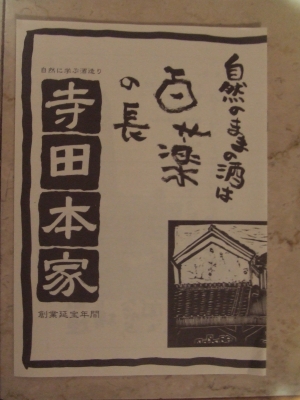 自然のまゝの酒は
百薬
の長
自然に学ぶ酒造り
寺田本家
創業延宝年間